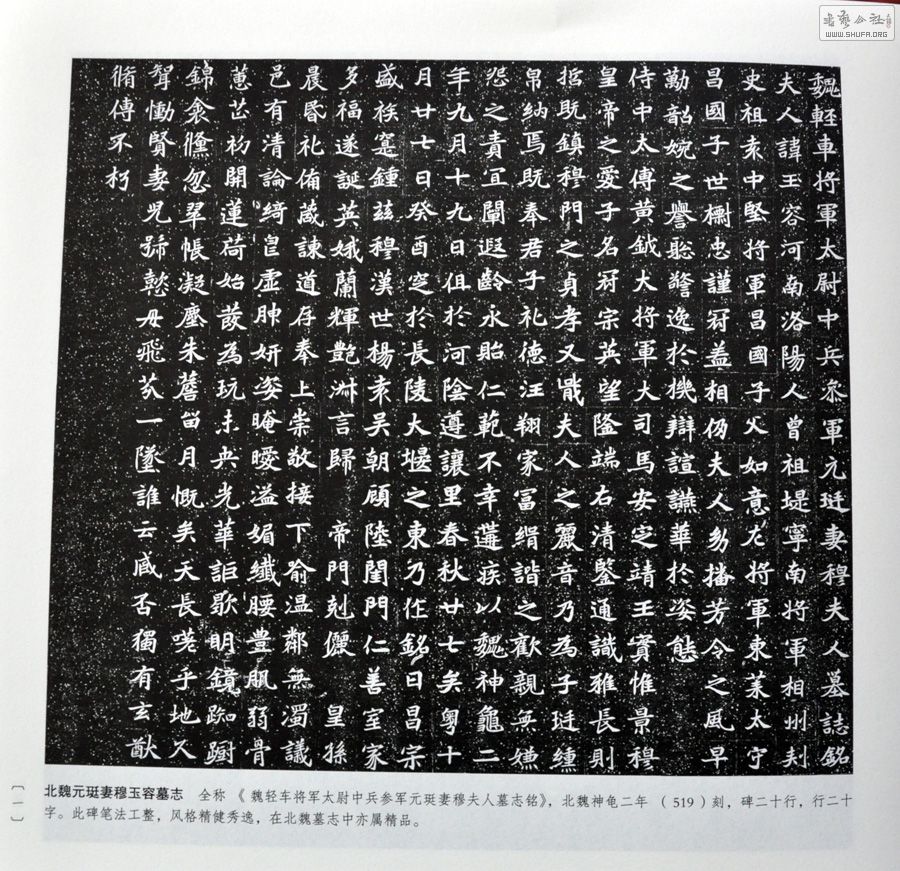 魏輕車將軍太尉中兵叅軍元珽妻穆夫人墓誌銘
夫人諱玉容河南洛陽人曾祖堤寧南將軍相州刺
史祖袁中堅將軍昌國子父如意左將軍東萊太守
昌國子世檦忠謹冠蓋相仍夫人幼播芳令之風早
勵韶婉之譽聡警逸於機辯諠讌華於姿態
侍中太傅黃鉞大將軍大司馬安定靖王實惟景穆
皇帝之愛子名冠宗英望隆端右清鑒通識雅長則
哲既鎮穆門之貞孝又戢夫人之麗音乃為子珽纏
帛納焉既奉君子礼德汪翔家富絹諧之歡親無嫌
怨之責宜闡遐齡永貽仁範不幸遘疾以魏神龜二
年九月十九日俎於河陰遵讓里春秋廿七矣粵十
月廿七日癸酉窆於長陵大堰之東乃作銘曰昌宗
盛族寔鍾兹穆漢世楊袁吳朝顧陸閨門仁善室家
多福遂誕英娥蘭輝艷淋言歸 帝門剋儷 皇孫
晨昏礼俻葴諫道存奉上崇敬接下俞温鄰無濁議
邑有清論綺皃虛胂妍姿晻曖溢媚纖腰豊肌弱骨
蕙芷初開蓮荷始發為玩未央光華詎歇明鏡踟蹰
錦衾儻忽翠帳凝塵朱簷留月慨矣天長嗟乎地久
聟慟賢妻兒號慜母飛芬一墜誰云臧否獨有玄猷
脩傳不朽
北魏元珽妻穆玉容墓志 全称《魏轻车将军太尉中兵参军元珽妻穆夫人墓志铭》，北魏神龟二年（519）刻，碑二十行，行二十
字。此碑笔法工整，风格精健秀逸，在北魏墓志中亦属精品。
〔一〕
WWW.SHUFA.ORG